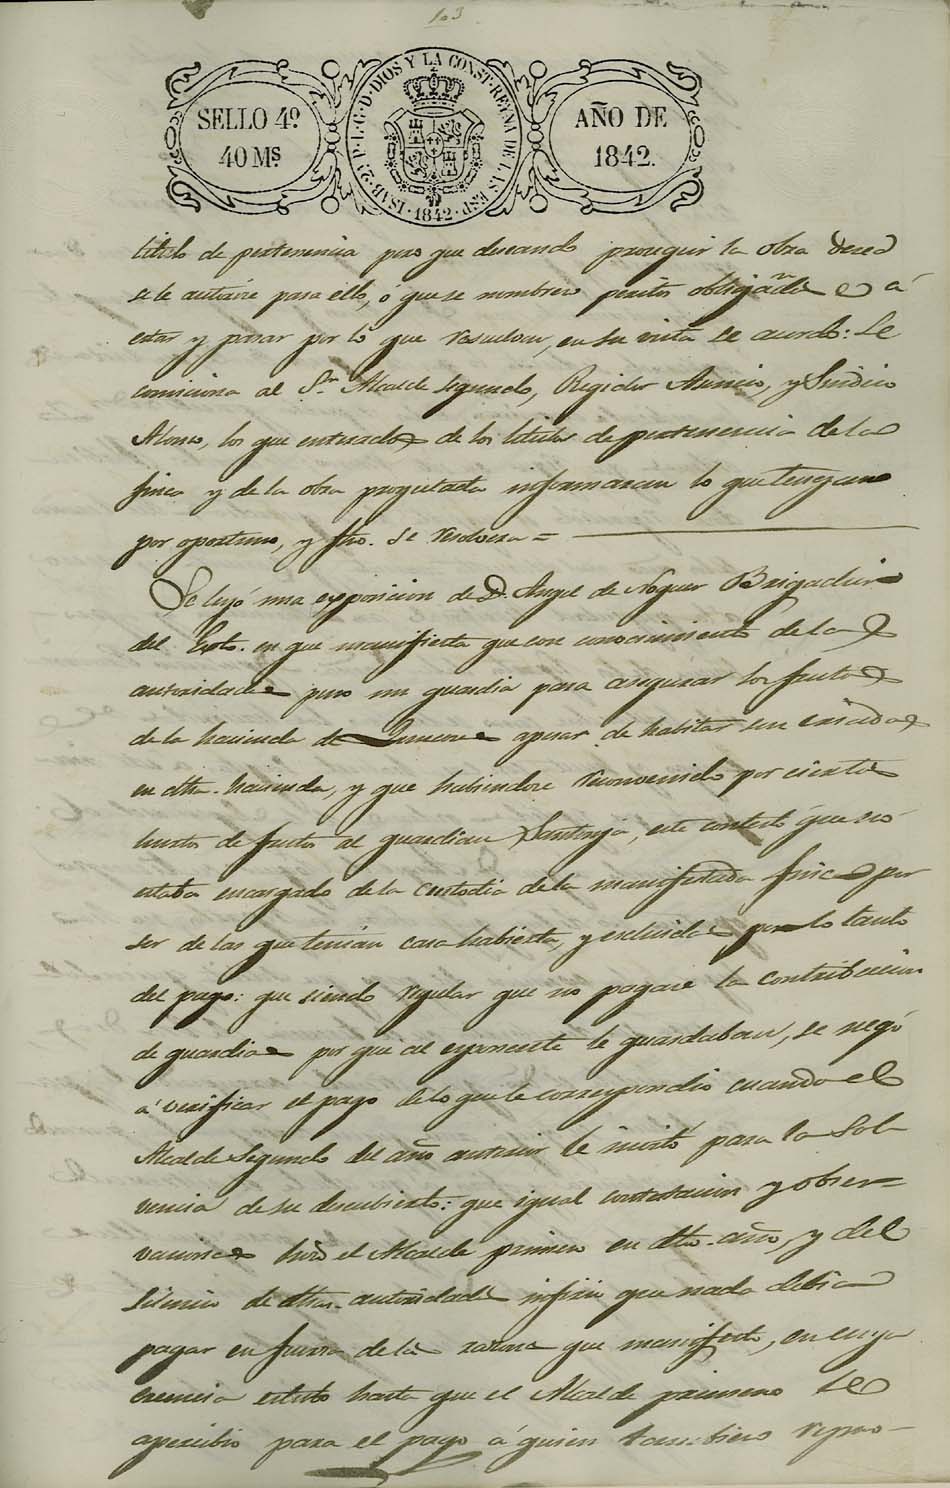 103
SELLO 4º
40 Ms
ISAB. 2ª P. L. G. D. DIOS Y LA CONST. REYNA DE LAS ESP.
1842
AÑO DE
1842.
titulo de pertenencia pero que deseando proseguir la obra
se le autorice para ello, ó que se nombren peritos á
estar y pasar por lo que resuelvan, en su vista se acordo: Se
comisiona al Sr. Alcalde segundo, Regidor Asencio, y Sindico
Alonso, los que enterados de los titulos de pertenencia de la
finca y de la obra proyectada informaran lo que tengan
por oportuno, y fho. se resolvera =
Se leyó una exposicion de D. Angel de Noguer Brigadier
del Exto. en que manifiesta que con conocimiento de la
autoridad puso un guardia para asegurar los frutos
de la hacienda de apesar de habitar sus criados
en dha. hacienda, y que habiendose reconvenido por ciertos
hurtos de frutos al guardian Santonja, este contestó que no
estaba encargado de la custodia de la manifestada finca por
ser de las que tenian casa habierta, y escluida por lo tanto
del pago: que siendo regular que no pagase la contribucion
de guardias por que al esponente le guardaban, se negó
á verificar el pago de lo que le correspondio cuando el
Alcalde Segundo del año anterior le invitó para la Sol
vencia de su descubierto: que igual contestacion y obser=
vaciones hizo el Alcalde primero en dho. año, y del
silencio de dhas. autoridades infirio que nada debia
pagar en fuerza de la razon que manifestó, en cuya
creencia estubo hasta que el Alcalde primero le
apercibio para el pago á quien tambien repro-